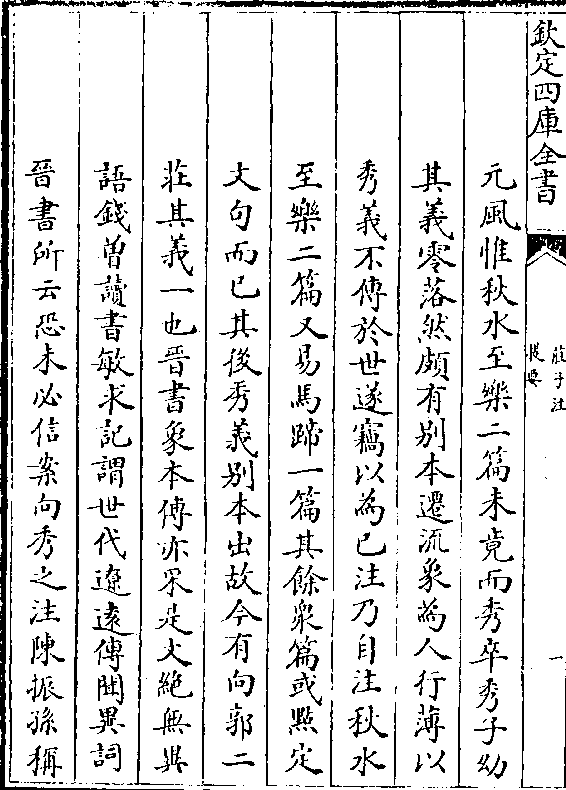 欽定四庫全書
莊子注
提要
一
元風惟秋水至樂二篇未竟而秀卒秀子幼
其義零落然頗有别本遷流象為人行薄以
秀義不傳於世遂竊以為已注乃自注秋水
至樂二篇又易馬蹄一篇其餘衆篇或點定
文句而已其後秀義别本出故今有向郭二
莊其義一也晉書象本傳亦采是文絶無異
語錢曽讀書敏求記謂世代遼遠傳聞異詞
晉書所云恐未必信案向秀之注陳振孫稱